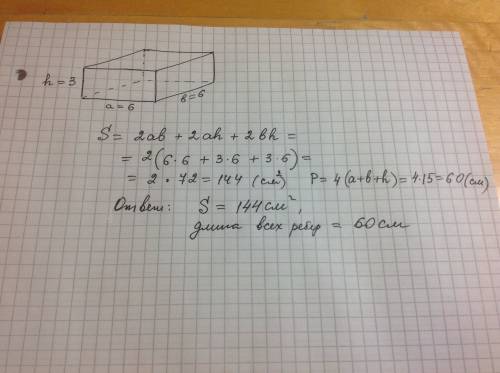 h = 3
a = 6
b = 6
S = 2ab + 2ah + 2bh =
= 2(6·6 + 3·6 + 3·6) =
= 2 · 72 = 144 (см²) P = 4(a+b+h) = 4·15 = 60 (см)
Ответ: S = 144 см²,
длина всех ребер = 60 см